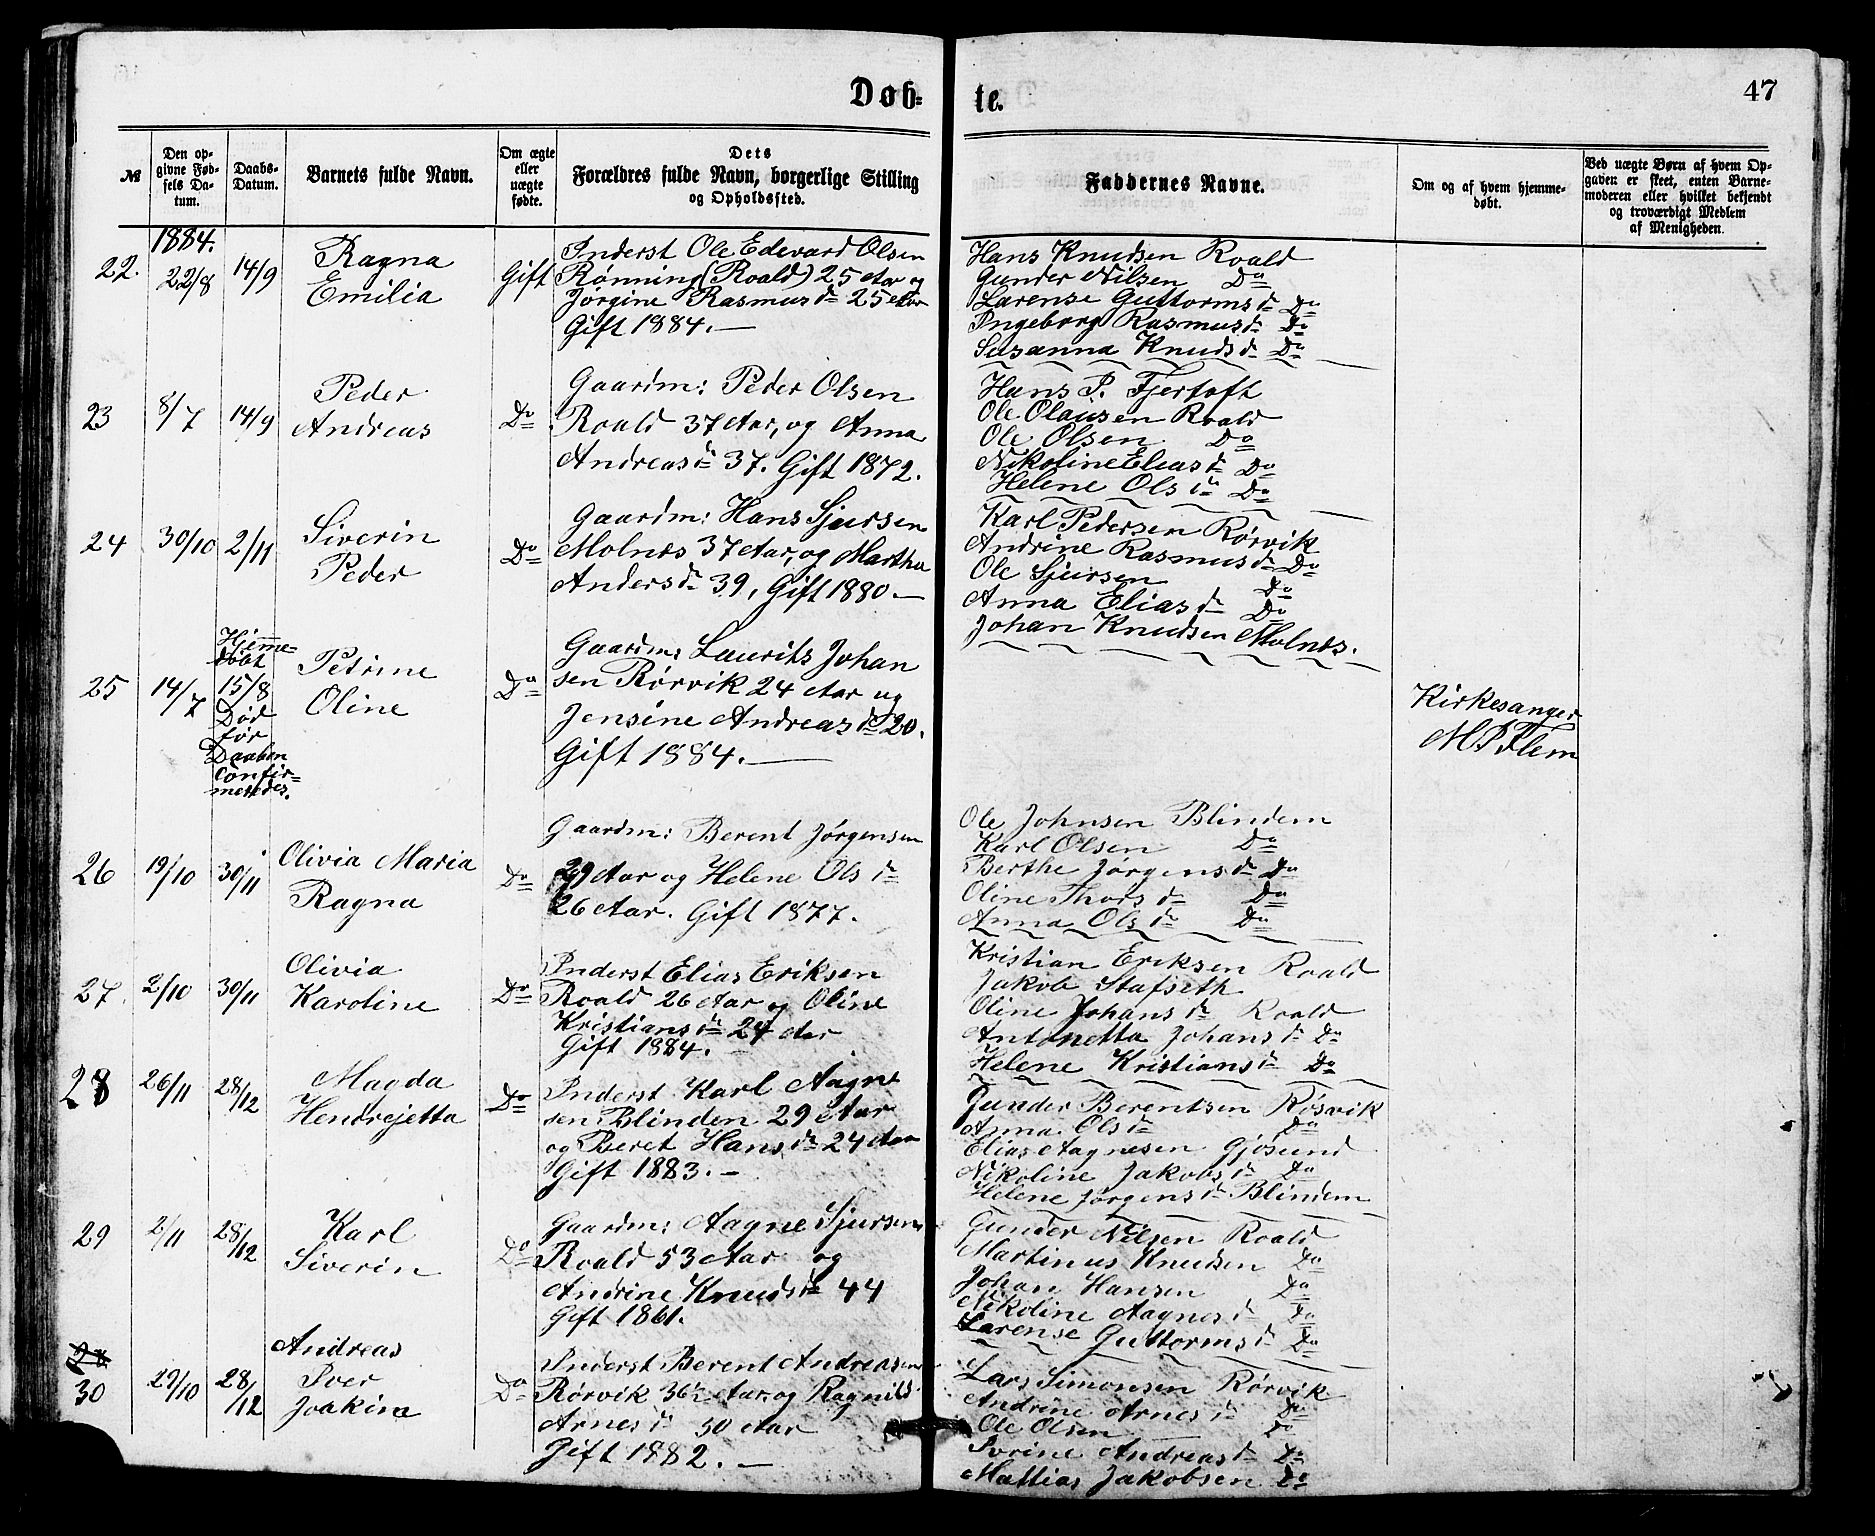 Døb-
te.
47
№
Den op-
givne Fød-
sels Da-
tum.
Daabs-
Datum.
Barnets fulde Navn.
Om ægte
eller
uægte
fødte.
Dets
Forældres fulde Navn, borgerlige Stilling
og Opholdssted.
Faddernes Navne.
Om og af hvem hjemme-
døbt.
Ved uægte Børn af hvem Op-
gaven er skeet, enten Barne-
moderen eller hvilket bekjendt
og troværdigt Medlem
af Menigheden.
1884.
22. 22/8 14/9
Ragna
Emilia
Gift
Inderst Ole Edevard Olsen
Rønning (Roald) 25 Aar og
Jørgine Rasmusdr 25 Aar
Gift 1884. —
Hans Knudsen Roald
Gunder Nilsen Do
Larense Guttormsdr Do
Ingeborg Rasmusdr Do
Susanna Knudsdr Do
23 8/7 14/9
Peder
Andreas
Do
Gaardm: Peder Olsen
Roald 37 Aar, og Anna
Andreasdr 37. Gift 1872.
Hans P. Fjertoft
Ole Olausen Roald
Ole Olsen Do
Nikoline Eliasdr Do
Helene Olsdr Do
24 30/10 2/11
Siverin
Peder
Do
Gaardm: Hans Sjursen
Molnes 37 Aar, og Martha
Andersdr 39, Gift 1880. —
Karl Pedersen Rørvik
Andrine Rasmusdr Do
Ole Sjursen Do
Anna Eliasdr Do
Johan Knudsen Molnes.
25 14/7
Hjemme-
døbt
15/8
Død
før
Daaben
Confir-
meredes.
Petrine
Oline
Do
Gaardm: Laurits Johan
sen Rørvik 24 Aar og
Jensine Andreasdr 20.
Gift 1884. —
Kirkesanger
M. P. Flem
26 19/10 30/11
Olivia Maria
Ragna
Do
Gaardm: Berent Jørgensen
29 Aar og Helene Olsdr
26 Aar. Gift 1877.
Ole Johnsen Blindem
Karl Olsen Do
Berthe Jørgensdr Do
Oline Thorsdr Do
Anna Olsdr Do
27. 2/10 30/11
Olivia
Karoline
Do
Inderst Elias Eriksen
Roald 26 Aar og Oline
Kristiansdr 24 Aar
Gift 1884.
Kristian Eriksen Roald
Jakob Stafseth
Oline Johansdr Roald
Antonetta Johansdr Do
Helene Kristiansdr Do
28 26/11 28/12
Magda
Hendrejetta
Do
Inderst Karl Aagne
sen Blinden 29 Aar
og Beret Hansdr 24 Aar
Gift 1883. —
Gunder Berentsen Røsvik
Anna Olsdr Do
Elias Aagnesen Gjøsund
Nikoline Jakobsdr Do
Helene Jørgensdr Blindem
29 2/11 28/12
Karl
Siverin
Do
Gaardm: Aagne Sjursen
Roald 53 Aar og
Andrine Knudsdr 44
Gift 1861.
Gunder Nilsen Roald
Martinus Knudsen Do
Johan Hansen Do
Nikoline Aagnesdr Do
Larense Guttormsdr Do
30 29/10 28/12
Andreas
Iver
Joakim
Do
Inderst Berent Andreasen
Rørvik 36½ Aar og Ragnild
Arnesdr 30 Aar
Gift 1882. —
Lars Simonsen Rørvik
Andrine Arnesdr Do
Ole Olsen Do
Ivrine Andreasdr Do
Mattias Jakobsen Do